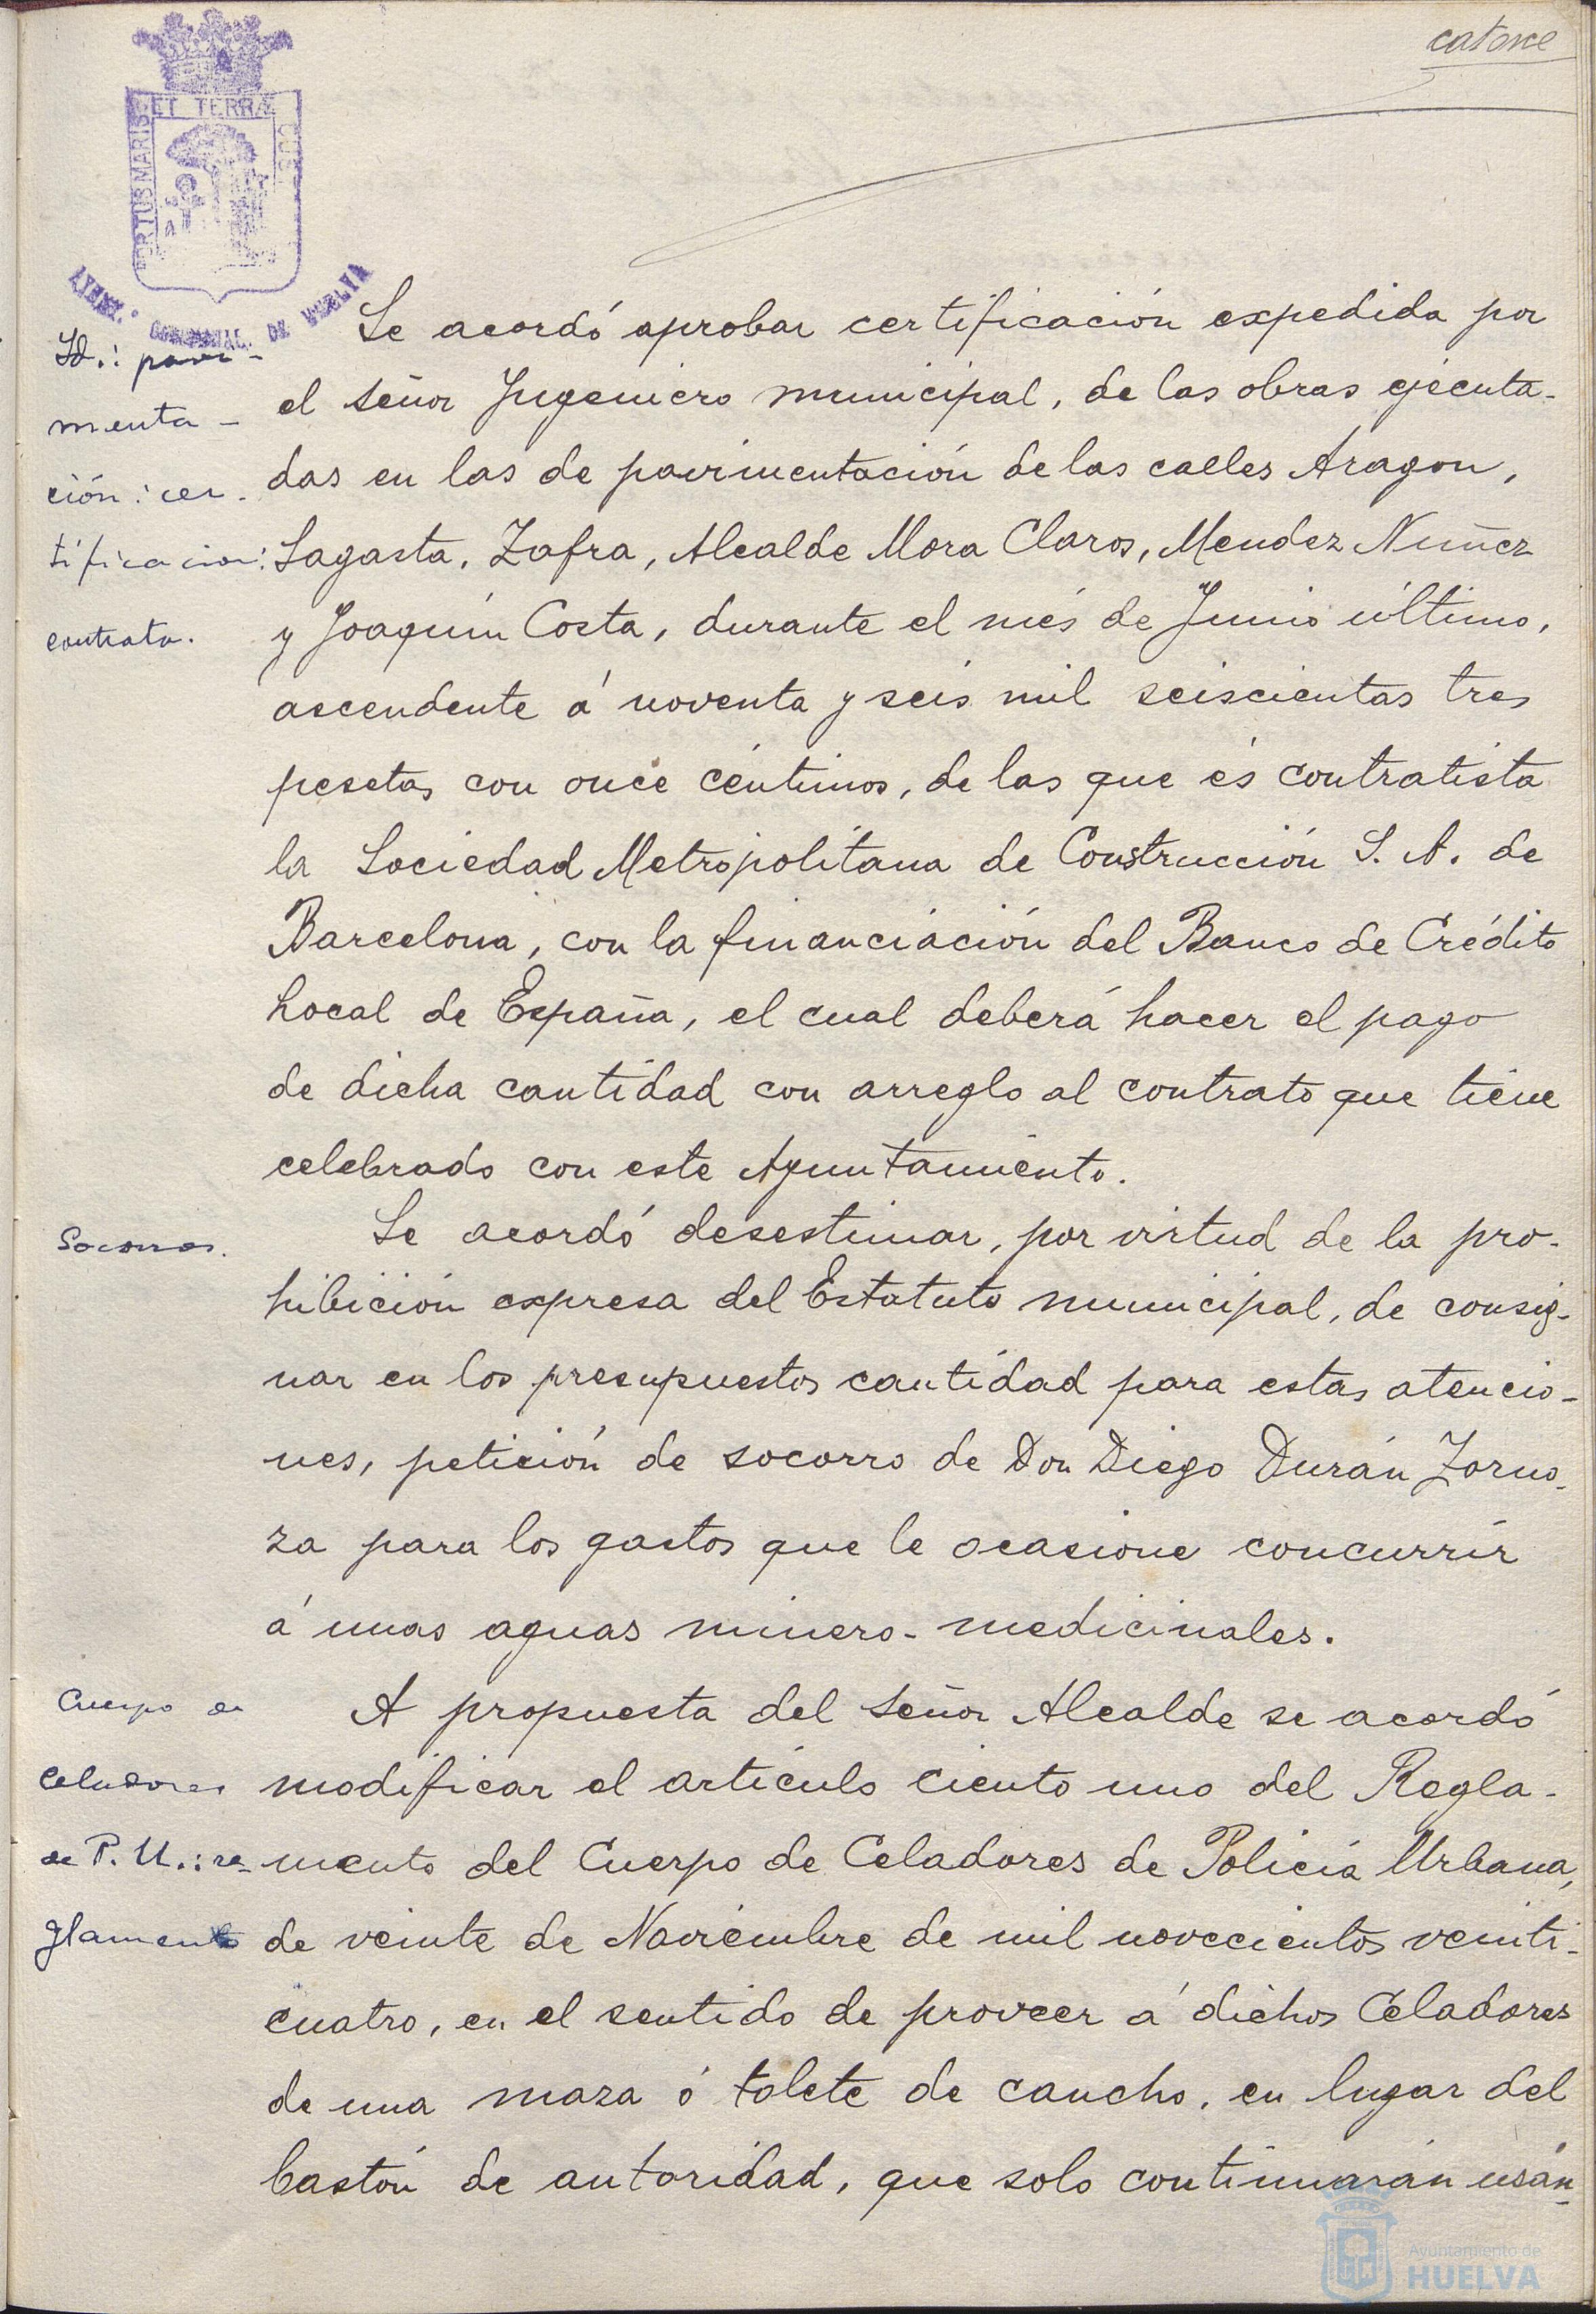 catorce
PORTUS MARIS ET TERRÆ CUSTO
AYUNT.º CONSTNAL. DE HUELVA
Se acordó aprobar certificación expedida por
Id.: pavi-
el señor Ingeniero municipal, de las obras ejecuta-
menta-
das en las de pavimentación de las calles Aragon,
ción: cer-
Sagasta, Zafra, Alcalde Mora Claros, Mendez Nuñez
tificacion:
y Joaquín Costa, durante el més de Junio último,
contrata.
ascendente á noventa y seis mil seiscientas tres
pesetas con once céntimos, de las que és contratista
la Sociedad Metropolitana de Construcción S. A. de
Barcelona, con la financiación del Banco de Crédito
Local de España, el cual deberá hacer el pago
de dicha cantidad con arreglo al contrato que tiene
celebrado con este Ayuntamiento.
Socorros.
Se acordó desestimar, por virtud de la pro-
hibición expresa del Estatuto municipal, de consig-
nar en los presupuestos cantidad para estas atencio-
nes, petición de socorro de Don Diego Durán Zorno-
za para los gastos que le ocasione concurrir
á unas aguas minero-medicinales.
Cuerpo de
A propuesta del señor Alcalde se acordó
Celadores
modificar el artículo ciento uno del Regla-
de P. U.: re-
mento del Cuerpo de Celadores de Policía Urbana,
glamento
de veinte de Noviembre de mil novecientos veinti-
cuatro, en el sentido de proveer á dichos Celadores
de una maza ó tolete de caucho, en lugar del
bastón de autoridad, que solo continuarán usán-
Ayuntamiento de
HUELVA